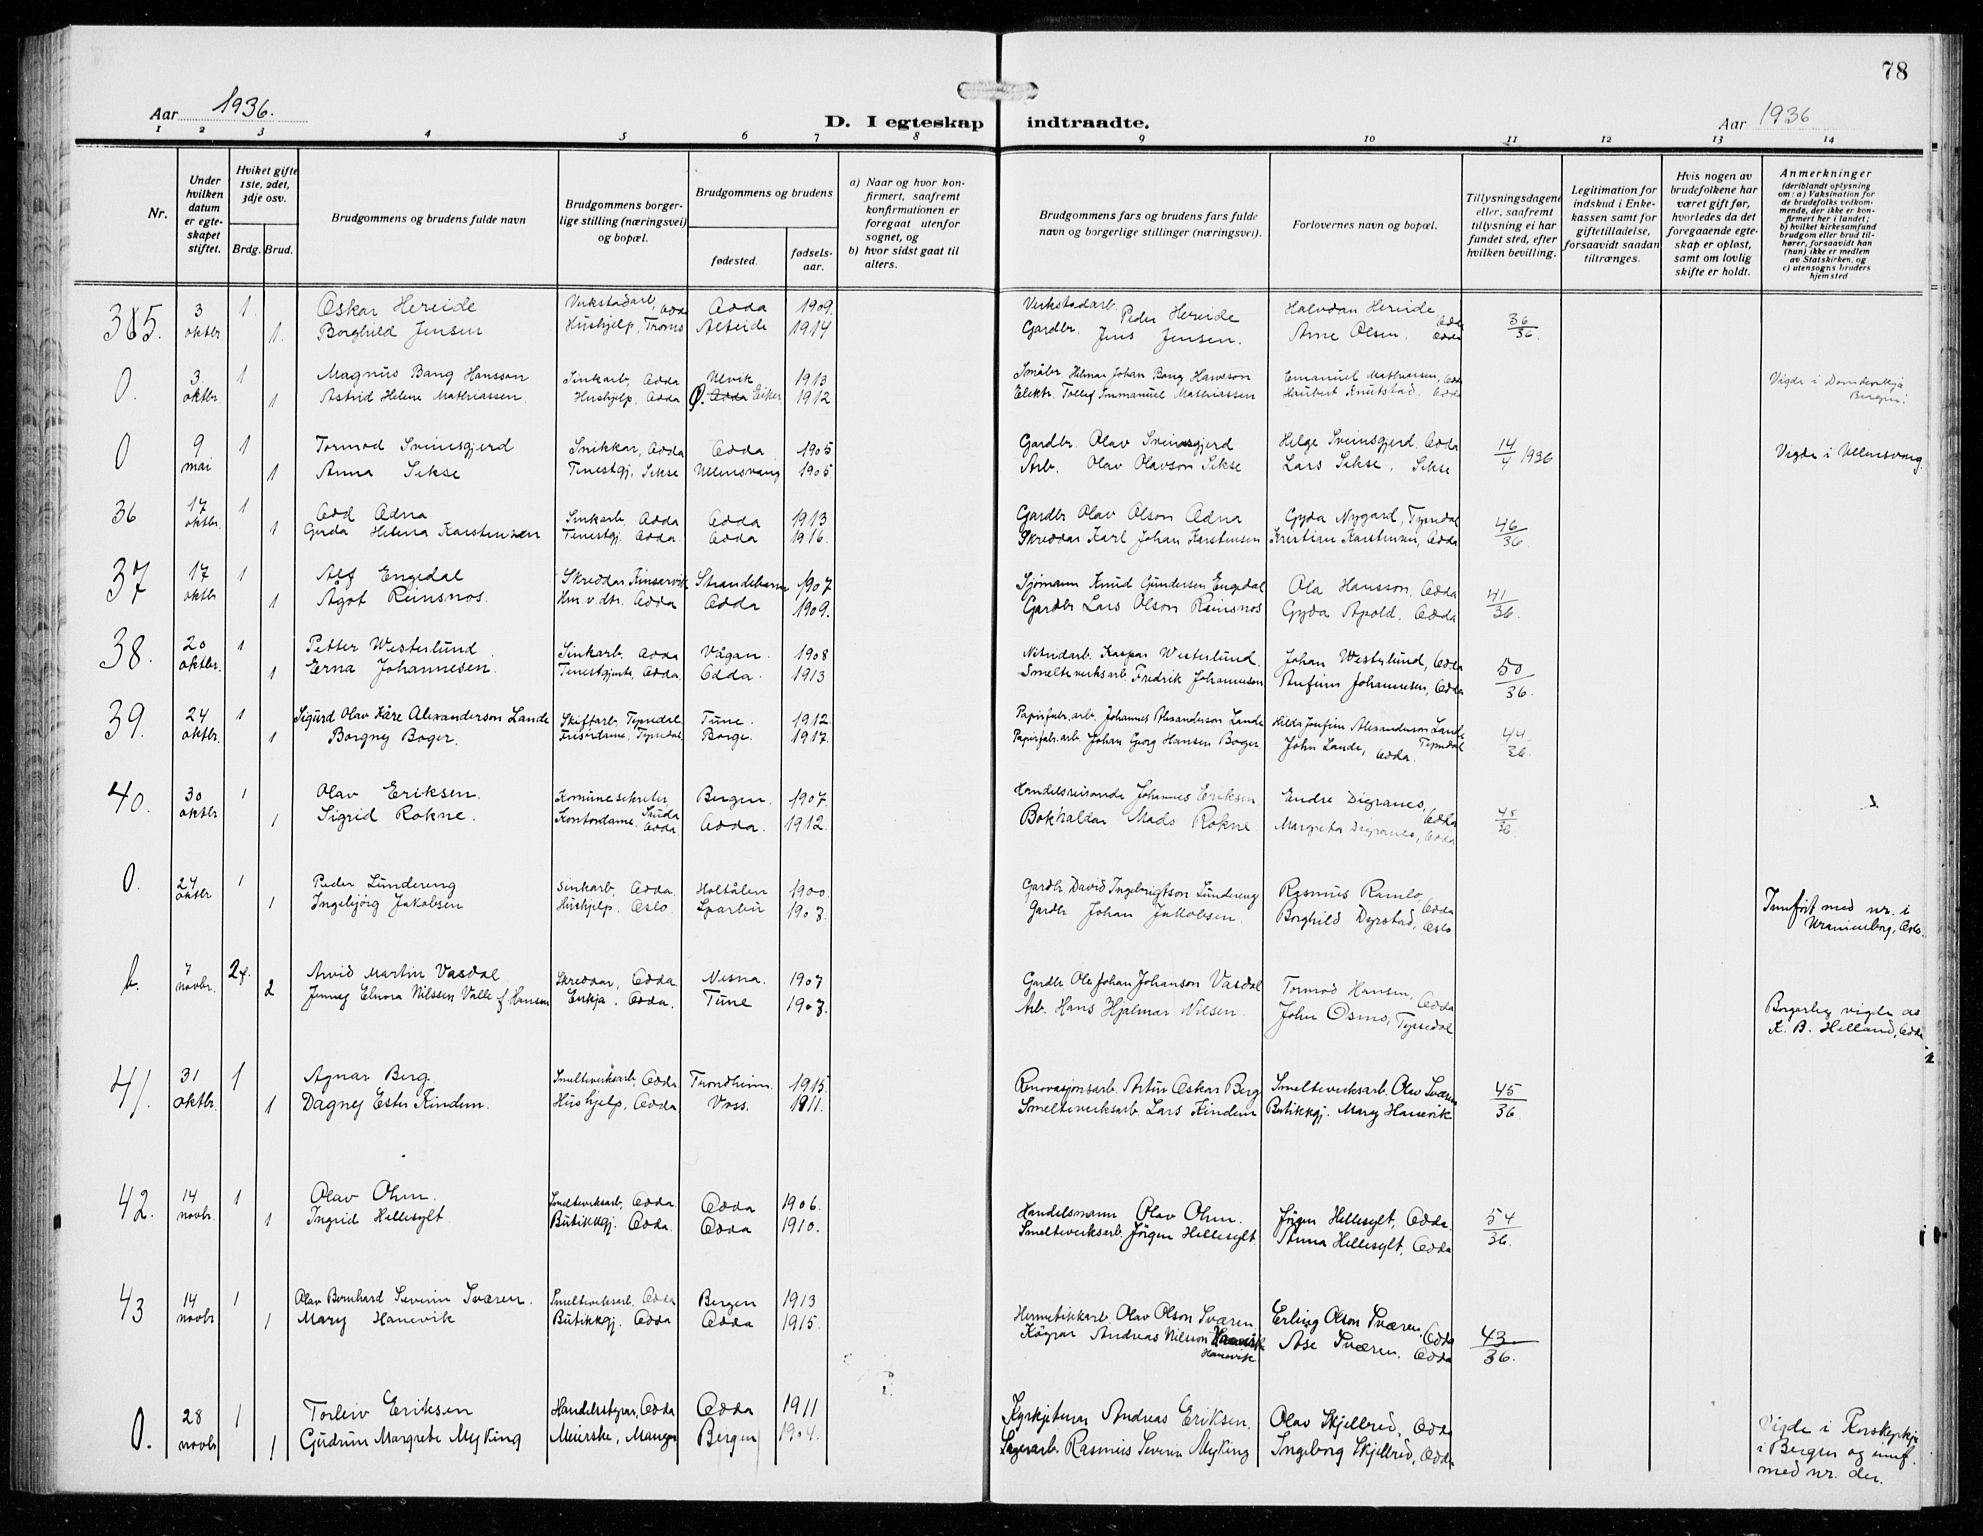 78
Aar 1936.
D. I egteskap indtraadte.
Aar 1936
1 2 3 4 5 6 7 8 9 10 11 12 13 14
Nr.
Under hvilken datum er egteskapet stiftet.
Hviket gifte 1ste, 2det, 3dje osv.
Brdg. Brud.
Brudgommens og brudens fulde navn
Brudgommens borgerlige stilling (næringsvei) og bopæl.
Brudgommens og brudens
fødested.
fødselsaar.
a) Naar og hvor konfirmert, saafremt konfirmationen er foregaat utenfor sognet, og
b) hvor sidst gaat til alters.
Brudgommens fars og brudens fars fulde navn og borgerlige stillinger (næringsvei).
Forlovernes navn og bopæl.
Tillysningsdagene eller, saafremt tillysning ei har fundet sted, efter hvilken bevilling.
Legitimation for indskud i Enkekassen samt for giftetilladelse, forsaavidt saadan tiltrænges.
Hvis nogen av brudefolkene har været gift før, hvorledes da det foregaaende egteskap er opløst, samt om lovlig skifte er holdt.
Anmerkninger (deriblandt oplysning om: a) Vaksination for de brudefolks vedkommende, der ikke er konfirmert her i landet; b) hvilket kirkesamfund brudgom eller brud tilhører, forsaavidt han (hun) ikke er medlem av Statskirken, og c) utensogns bruders hjemsted
35. 3 oktbr 1. Oskar Hereide Verkstadarb. Odda Odda 1909. Verkstadarb. Peder Hereide Halvdan Hereide Odda 36/36
1. Borghild Jensen Hushjelp, Troms Alteide 1914 Gardbr. Jens Jensen. Arne Olsen. Odda
0. 3. oktbr 1 Magnus Bang Hansson Sinkarb. Odda Ulvik 1913 Småbr Helmer Johan Bang Hansson Emanuel Mathiassen, Odda Vigde i Domkerkja Bergen.
1 Astrid Helene Mathiassen. Hushjelp, Odda Ø. Eiker 1912 Elektr. Tollef Immanuel Mathiassen Haubert Knutstad. Odda
0 9 mai 1 Tormod Sveinsgjerd Snikkar, Odda Odda 1905 Gardbr. Olav Sveinsgjerd Helge Sveinsgjerd, Odda 14/4 1936 Vigde i Ullensvang.
1 Anna Sekse Tenestgj, Sekse Ullensvang 1905 Arb. Olav Olavson Sekse Lars Sekse, Sekse
36 17 oktbr. 1 Odd Odna Sinkarb. Odda Odda 1913 Gardbr Olav Olson Odna Gyda Nygard, Tyssedal 46/36
1 Gerda Helena Karstensen Tenestgj. Odda. Odda 1916. Skreddar Karl Johan Karstensen Kristian Karstensen, Odda
37 17 oktbr 1 Alf Engedal Skreddar, Kinsarvik Strandebarm 1907 Sjømann Knud Gundersen Engedal Ola Hansson, Odda 41/36.
1 Agot Reinsnos. Hm. v. dtr. Odda Odda 1909. Gardbr Lars Olson Reinsnos Gyda Apold. Odda
38. 20 oktbr. 1 Petter Westerlund Sinkarb. Odda Vågan. 1908 Nitridarb. Kaspar Westerlund. Johan Westerlund, Odda 50/36.
1 Erna Johannesen. Tenestgjente, Odda Odda. 1913 Smelteverksarb Fredrik Johannesen Anfinn Johannesen, Odda
39. 24 oktbr. 1 Sigurd Olav Kåre Alexanderson Lande Skiftarb, Tyssedal Tune. 1912. Papirfabr. arb. Johannes Alexanderson Lande Hilda Josefine Alexanderson Lande Tyssedal 44/36
1 Borgny Boger. Frisørdame, Tyssedal Borge. 1917. Papirfabr. arb Johan Georg Hansen Boger John Lande, Odda.
40. 30 oktbr 1 Olav Eriksen. Komunesekretær Skuda Bergen. 1907. Handelsreisande Johannes Eriksen Endre Digranes, Odda 45/36
1 Sigrid Rokne. Kontordame. Odda Odda. 1912. Bokhaldar Mads Rokne Margreta Digranes, Odda
0. 24 oktbr 1 Peder Lundereng Sinkarb, Odda Holtålen 1900 Gardbr David Ingebrigtson Lundereng Rasmus Ramlo, Odda Innført med nr. i Uranienborg, Oslo.
1 Ingebjörg Jakobsen Hushjelp. Oslo. Sparbu 1903. Gardbr Johan Jakobsen. Borghild Dyrstad, Oslo
b. 7 novbr. 2 f. Arvid Martin Vasdal Skreddar, Odda Nesna. 1907 Gardbr Ole Johan Johanson Vasdal Tormod Hansen, Odda Borgarleg vigde av K. B. Helland, Odda
2 Jenney Elnora Nilssen Valle f. Hansen Enkja. Odda. Tune 1903. Arb. Hans Hjalmar Nilsen. John Osmo, Tyssedal
41. 31 oktbr. 1 Agnar Berg. Smelteverksarb, Odda. Trondheim. 1915. Renovasjonsarb. Artur Oskar Berg Smelteverksarb. Olav Sværen 45/36
1 Dagney Ester Kinden. Hushjelp, Odda Voss. 1911. Smelteverksarb Lars Kinden Butikkgj. Mary Hanevik
42. 14 novbr. 1 Olav Ohm. Smelteverksarb, Odda. Odda 1906. Handelsmann Olav Ohm. Jörgen Hellesylt, Odda. 54/36.
1 Ingrid Hellesylt Butikkgj. Odda. Odda 1910. Smelteverksarb. Jörgen Hellesylt Anna Hellesylt, Odda
43 14 novbr 1 Olav Bernhard Severin Sværen. Smelteverksarb, Odda Bergen 1913 Hermetikkarb Olav Olson Sværen Erling Olson Sværen, Odda 43/36.
1 Mary Hanevik Butikkgj. Odda Odda 1915. Andreas Nilsson Hanevik Åse Sværen. Odda
0. 28 novbr 1 Torleiv Eriksen Handelsstyrar, Odda Odda 1911 Kyrkjetenar Andreas Eriksen. Olav Skjellrid, Odda Vigde i Korskyrkja i Bergen og innf. med nr. der.
1 Gudrun Margrete Myking Meierske, Manger Bergen 1904. Lagerarb Rasmus Severin Myking Ingeborg Skjellrid, Odda